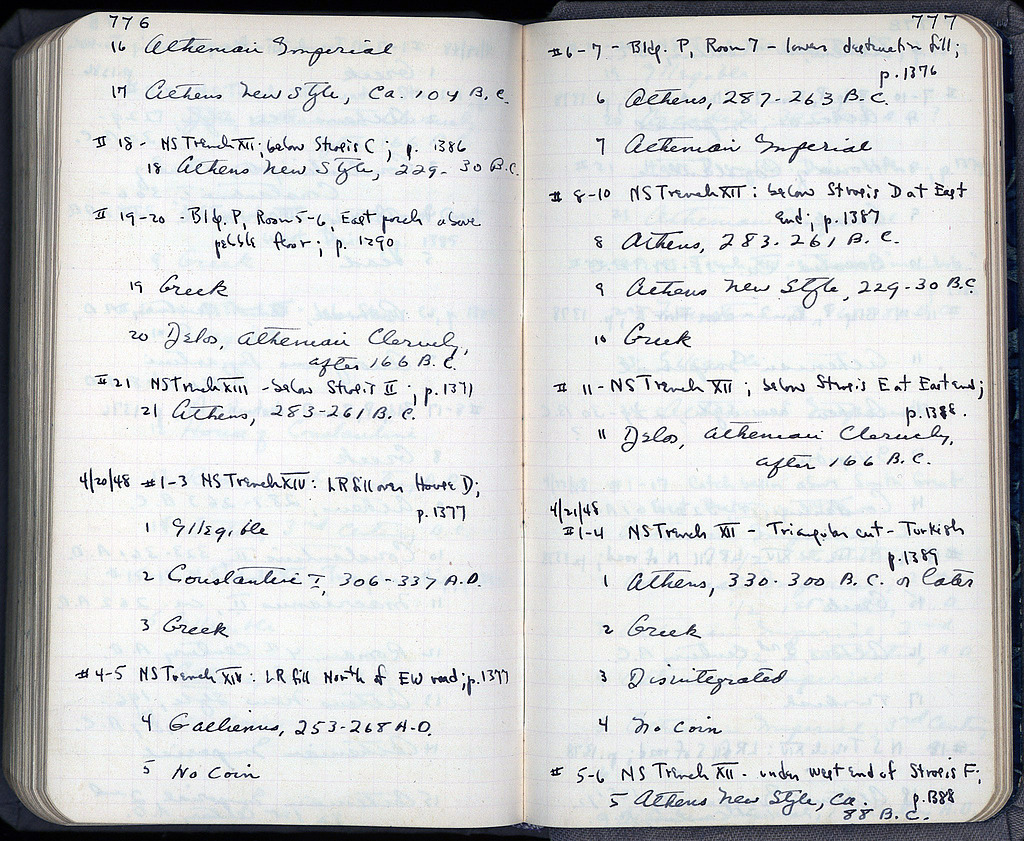 776
16 Athenian Imperial
17 Athens New Style, Ca. 104 B.C.
# 18 - NS Trench XII; below Strosis C; p. 1386
18 Athens New Style, 229-30 B.C.
# 19-20 - Bldg. P, Room 5-6, East porch above
pebble floor; p. 1290
19 Greek
20 Delos, Athenian Cleruchy,
after 166 B.C.
# 21 NS Trench XIII - below Strosis II; p. 1371
21 Athens, 283-261 B.C.
4/20/48 #1-3 NS Trench XIV: LR fill over House D;
p. 1377
1 Illegible
2 Constantine I, 306-337 A.D.
3 Greek
#4-5 NS Trench XIV: LR fill North of EW road; p. 1377
4 Gallienus, 253-268 A.D.
5 No Coin
777
#6-7 - Bldg. P, Room 7 - lower destruction fill;
p. 1376
6 Athens, 287-263 B.C.
7 Athenian Imperial
# 8-10 NS Trench XII: below Strosis D at East
End; p. 1387
8 Athens, 283-261 B.C.
9 Athens New Style, 229-30 B.C.
10 Greek
# 11 - NS Trench XII; below Strosis E at East end;
p. 1388.
11 Delos, Athenian Cleruchy,
after 166 B.C.
4/21/48
#1-4 NS Trench XII - Triangular cut - Turkish
p. 1389
1 Athens, 330-300 B.C. or later
2 Greek
3 Disintegrated
4 No Coin
# 5-6 NS Trench XII - under west end of Strosis F;
p. 1388
5 Athens New Style, Ca.
88 B.C.